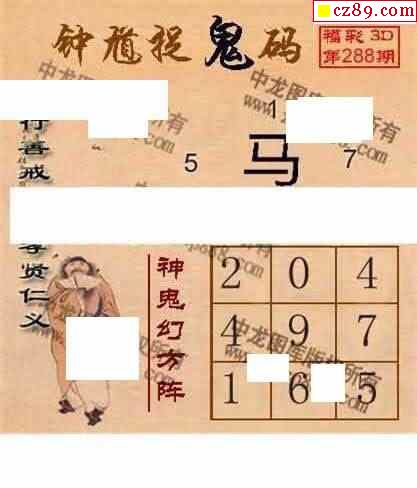 cz89.com
钟馗捉鬼码
福彩3D
第288期
1
马
5
7
行善戒
孝贤仁义
神鬼幻方阵
2 0 4
4 9 7
1 6 5
中龙图库版权所有